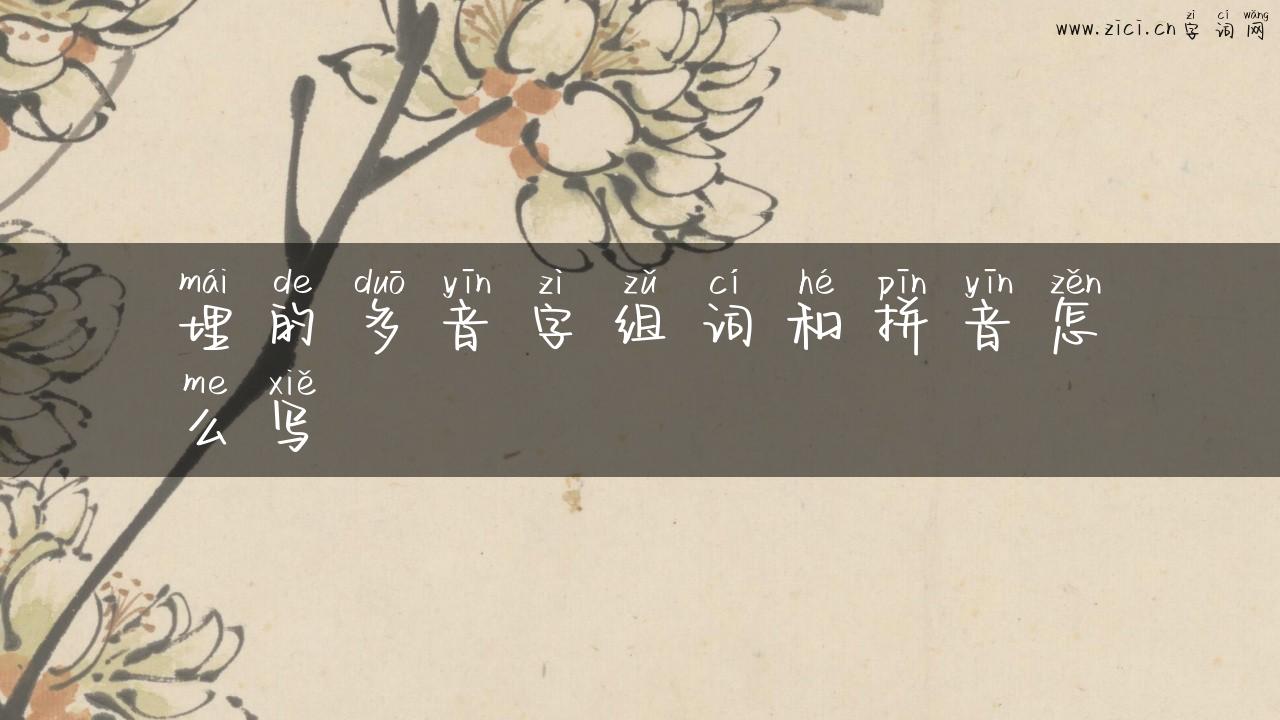 zì cí wǎng
www.zici.cn 字词网
mái de duō yīn zì zǔ cí hé pīn yīn zěn
埋的多音字组词和拼音怎
me xiě
么写